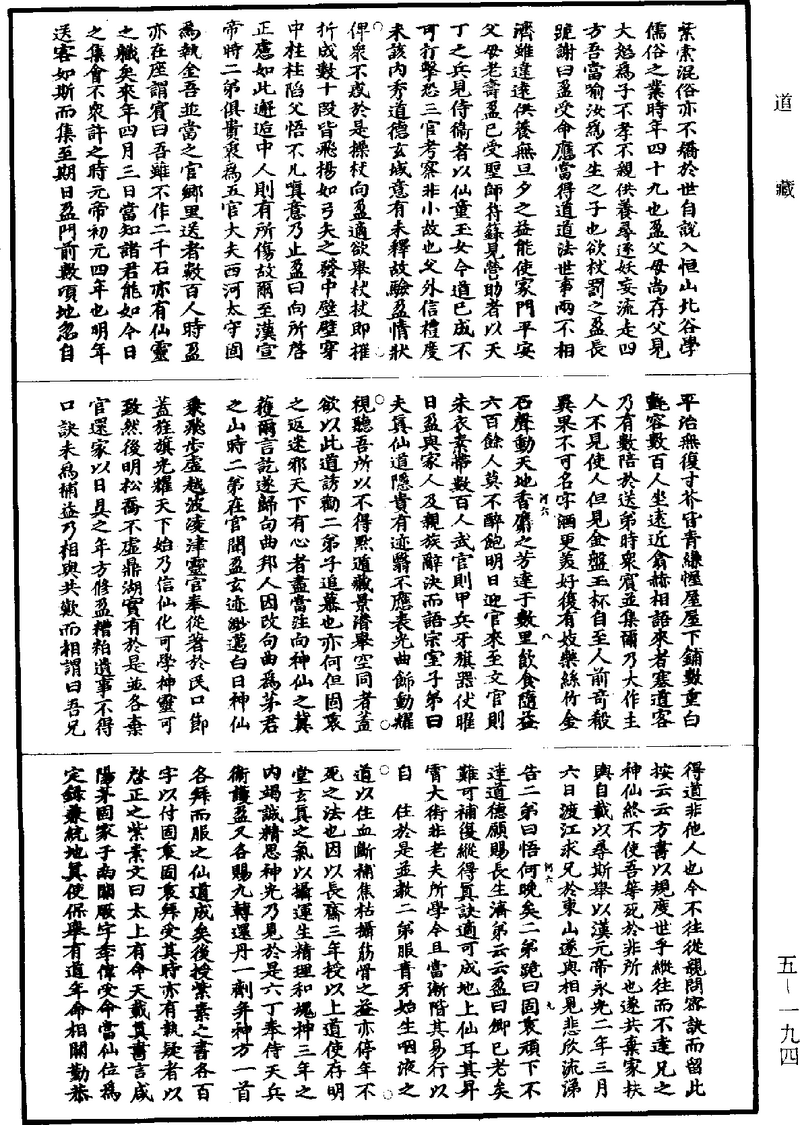 道藏
業索混俗亦不矯於世自說入恒山北谷學
儒俗之業時年四十九也盈父母尚存父見
大怒為子不孝不親供養尋逐妖妄流走四
方吾當喻汝為不生之子也欲杖罰之盈長
跪謝曰盈受命應當得道道法世事兩不相
濟雖違遠供養無旦夕之益能使家門平安
父母老壽盈已受聖師符籙見營助者以天
丁之兵見侍衛者以仙童玉女今道已成不
可打擊恐三官考察非小故也父外信禮度
未該內秀道德玄域意有未釋故驗盈情狀
俾眾不惑於是操杖向盈適欲舉杖杖即摧
折成數十段皆飛揚如弓矢之發中壁壁穿
中柱柱陷父悟不凡嗔意乃止盈曰向所啓
正慮如此邂逅中人則有所傷故爾至漢宣
帝時二弟俱貴衷為五官大夫西河太守固
為執金吾並當之官鄉里送者數百人時盈
亦在座謂賓曰吾雖不作二千石亦有仙靈
之職矣來年四月三日當知諸君能如今日
之集會不眾許之時元帝初元四年也明年
送客如斯而集至期日盈門前數頃地忽自
平治無復寸芥皆青縑幄屋屋下鋪數重白
氈容數百人坐遠近翕赫相語來者塞道客
乃有數陪於送弟時眾賓並集爾乃大作主
人不見使人但見金盤玉杯自至人前奇殽
異果不可名字酒更美好復有妓樂絲竹金
石聲動天地香麝之芳達于數里飲食隨益
六百餘人莫不醉飽明日迎官來至文官則
朱衣素帶數百人武官則甲兵牙旗器仗曜
日盈與家人及親族辭決而語宗室子弟曰
夫真仙道隱貴有迹翳不應表光曲飾動耀
視聽吾所以不得默遁藏景潛舉空同者蓋
欲以此道誘勸二弟子追慕也亦何但固衷
之返迷邪天下有心者盡當注向神仙之冀
獲爾言訖遂歸句曲邦人因改句曲為茅君
之山時二弟在官聞盈玄迹緲邁白日神仙
乘飛步虛越波凌津靈官奉從著於民口節
蓋旌旗光耀天下始乃信仙化可學神靈可
致然後明松喬不虛鼎湖實有於是並各棄
官還家以日具之年方修盈糟粕遺事不得
口訣未為補益乃相與共歎而相謂曰吾兄
得道非他人也今不往從親問密訣而留此
按云云方書以規度世乎縱往而不達兄之
神仙終不使吾輩死於非所也遂共棄家扶
輿自載以尋斯舉以漢元帝永光二年三月
六日渡江求兄於東山遂與相見悲欣流涕
告二弟曰悟何晚矣二弟跪曰固衷頑下不
達道德願賜長生濟弟云云盈曰卿已老矣
難可補復縱得真訣適可成地上仙耳其昇
霄大術非老夫所學今且當漸階其易行以
自　住於是並教二弟服青牙始生咽液之
道以住血斷補焦枯攝筋骨之益亦停年不
死之法也因以長齋三年授以上道使存明
堂玄真之氣以攝運生精理和塊神三年之
內竭誠精思神光乃見於是六丁奉侍天兵
衛護盈又各賜九轉還丹一劑并神方一首
各拜而服之仙道成矣後授紫素之書各百
字以付固衷固衷拜受其時亦有執疑者以
啓正之紫素文曰太上有命天載其書言咸
陽茅固家于南關厥字季偉受命當仙位為
定錄兼統地真使保舉有道年命相關勤恭
河六　八
河六　九
五—一九四